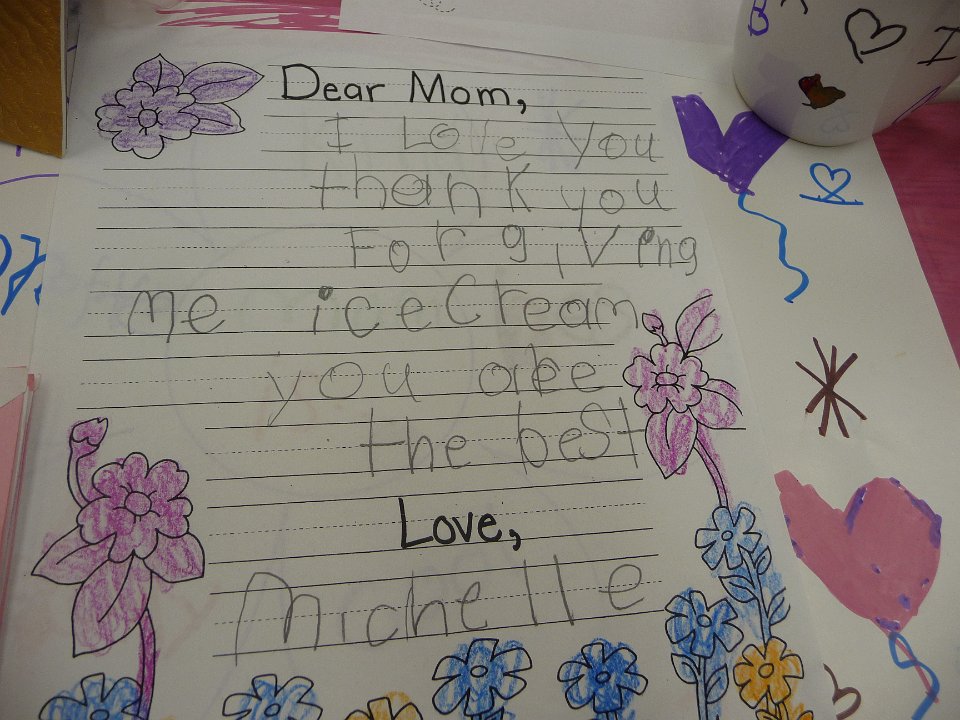 Dear Mom,
I Love You
thank you
For giving
me iceCream
you are
the best
Love,
Michelle
I